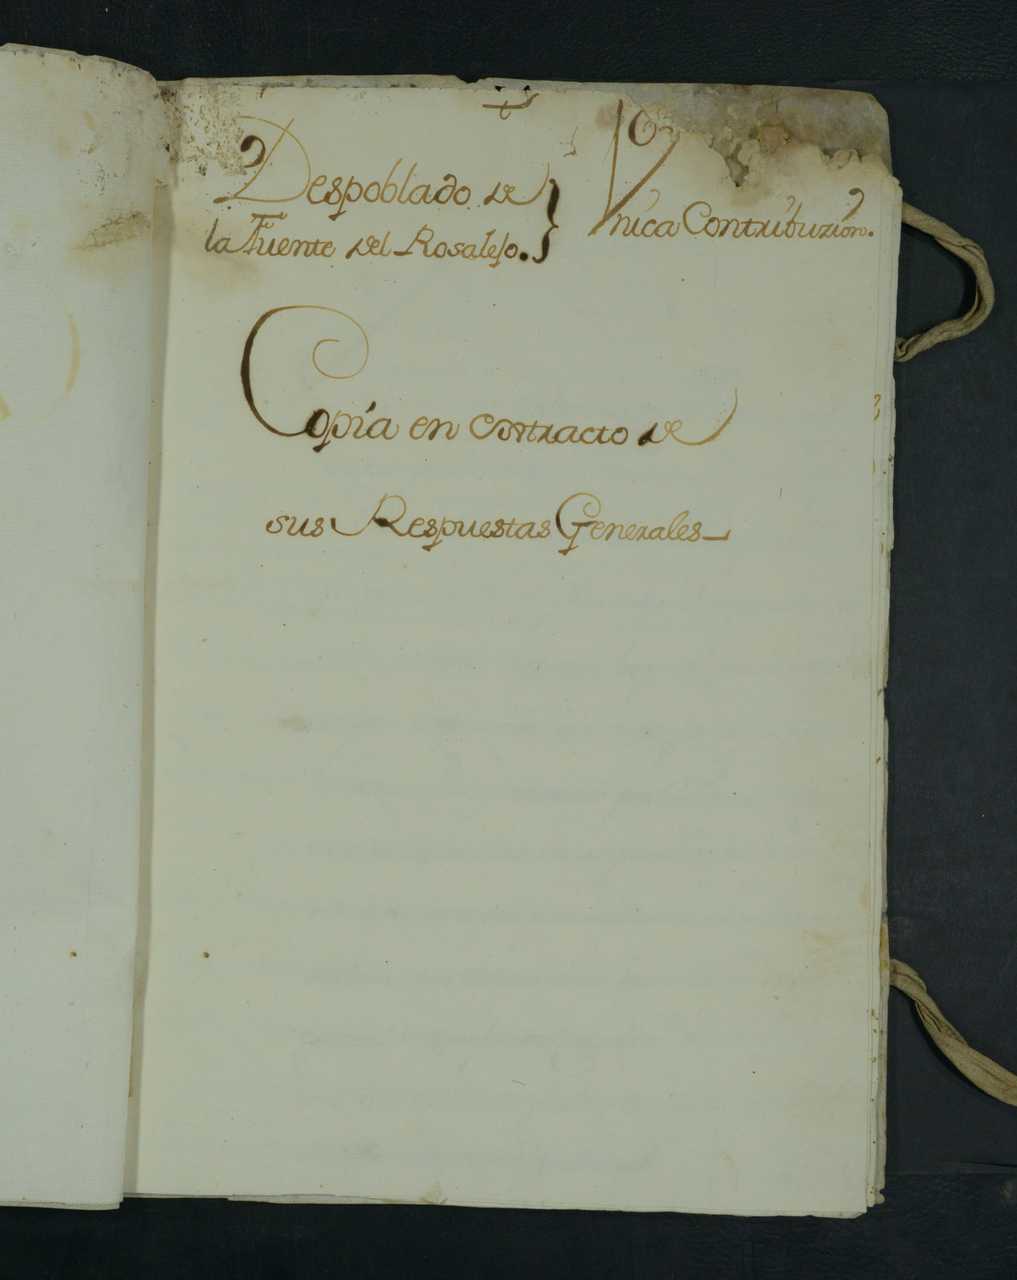 Despoblado de
la Fuente del Rosalejo.
Vnica Contribuzion.
Copía en contracto de
sus Respuestas Generales